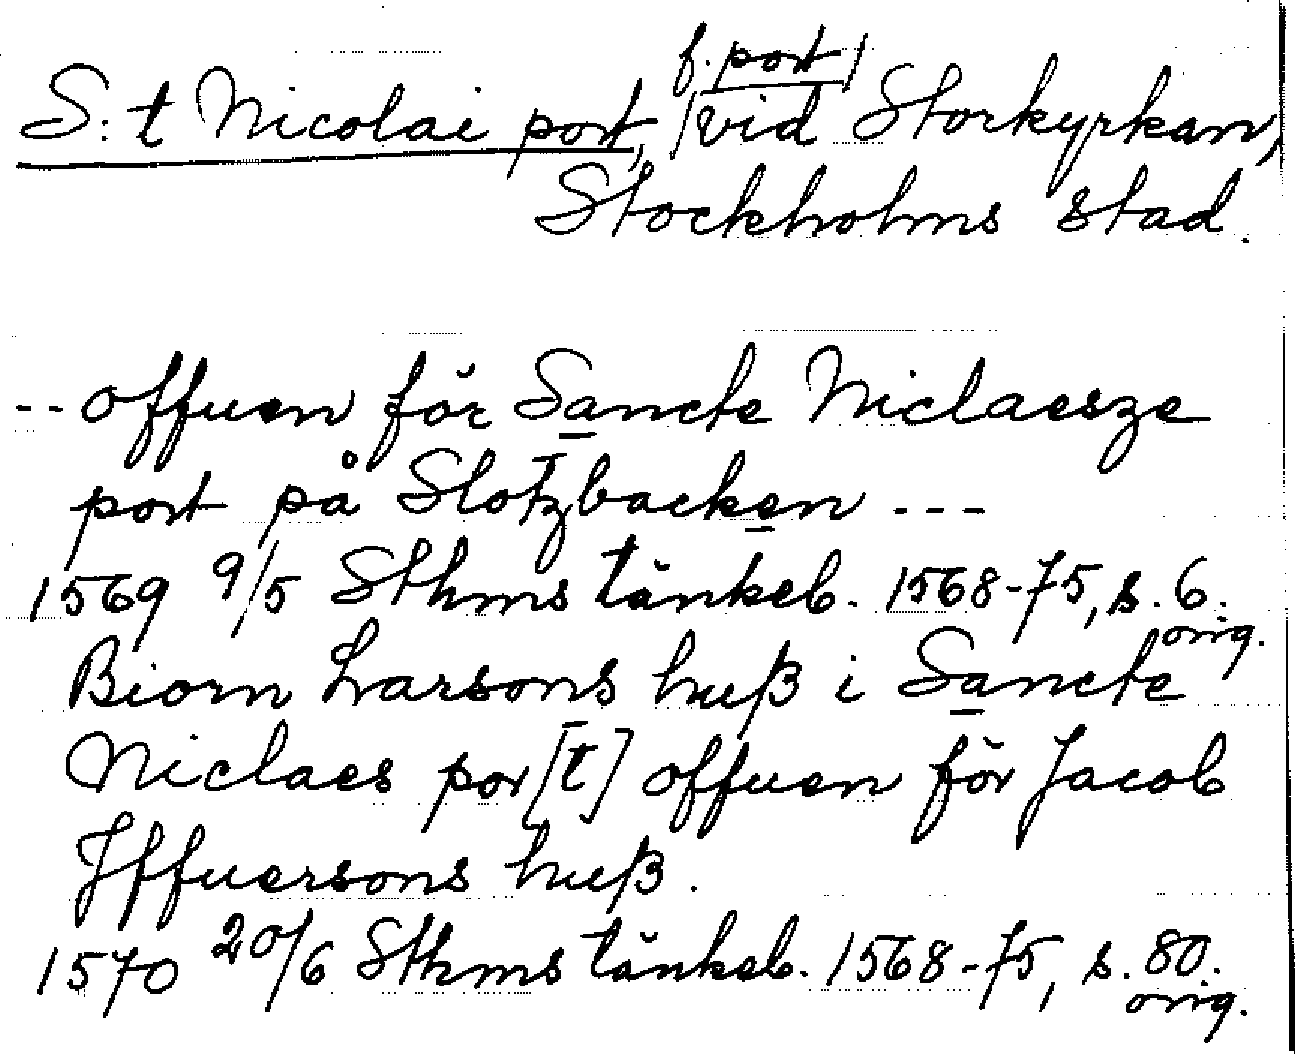 f. port/
S:t Nicolai port, /vid Storkyrkan,
Stockholms stad.
-- offuen för Sancte Niclaesze
port på Slotzbacken ---
1569 9/5 Sthms tänkeb. 1568-75, s. 6.
orig.
Biorn Larsons huß i Sancte
Niclaes por[t] offuen för Jacob
Iffuersons huß.
1570 20/6 Sthms tänkeb. 1568-75, s. 80.
orig.